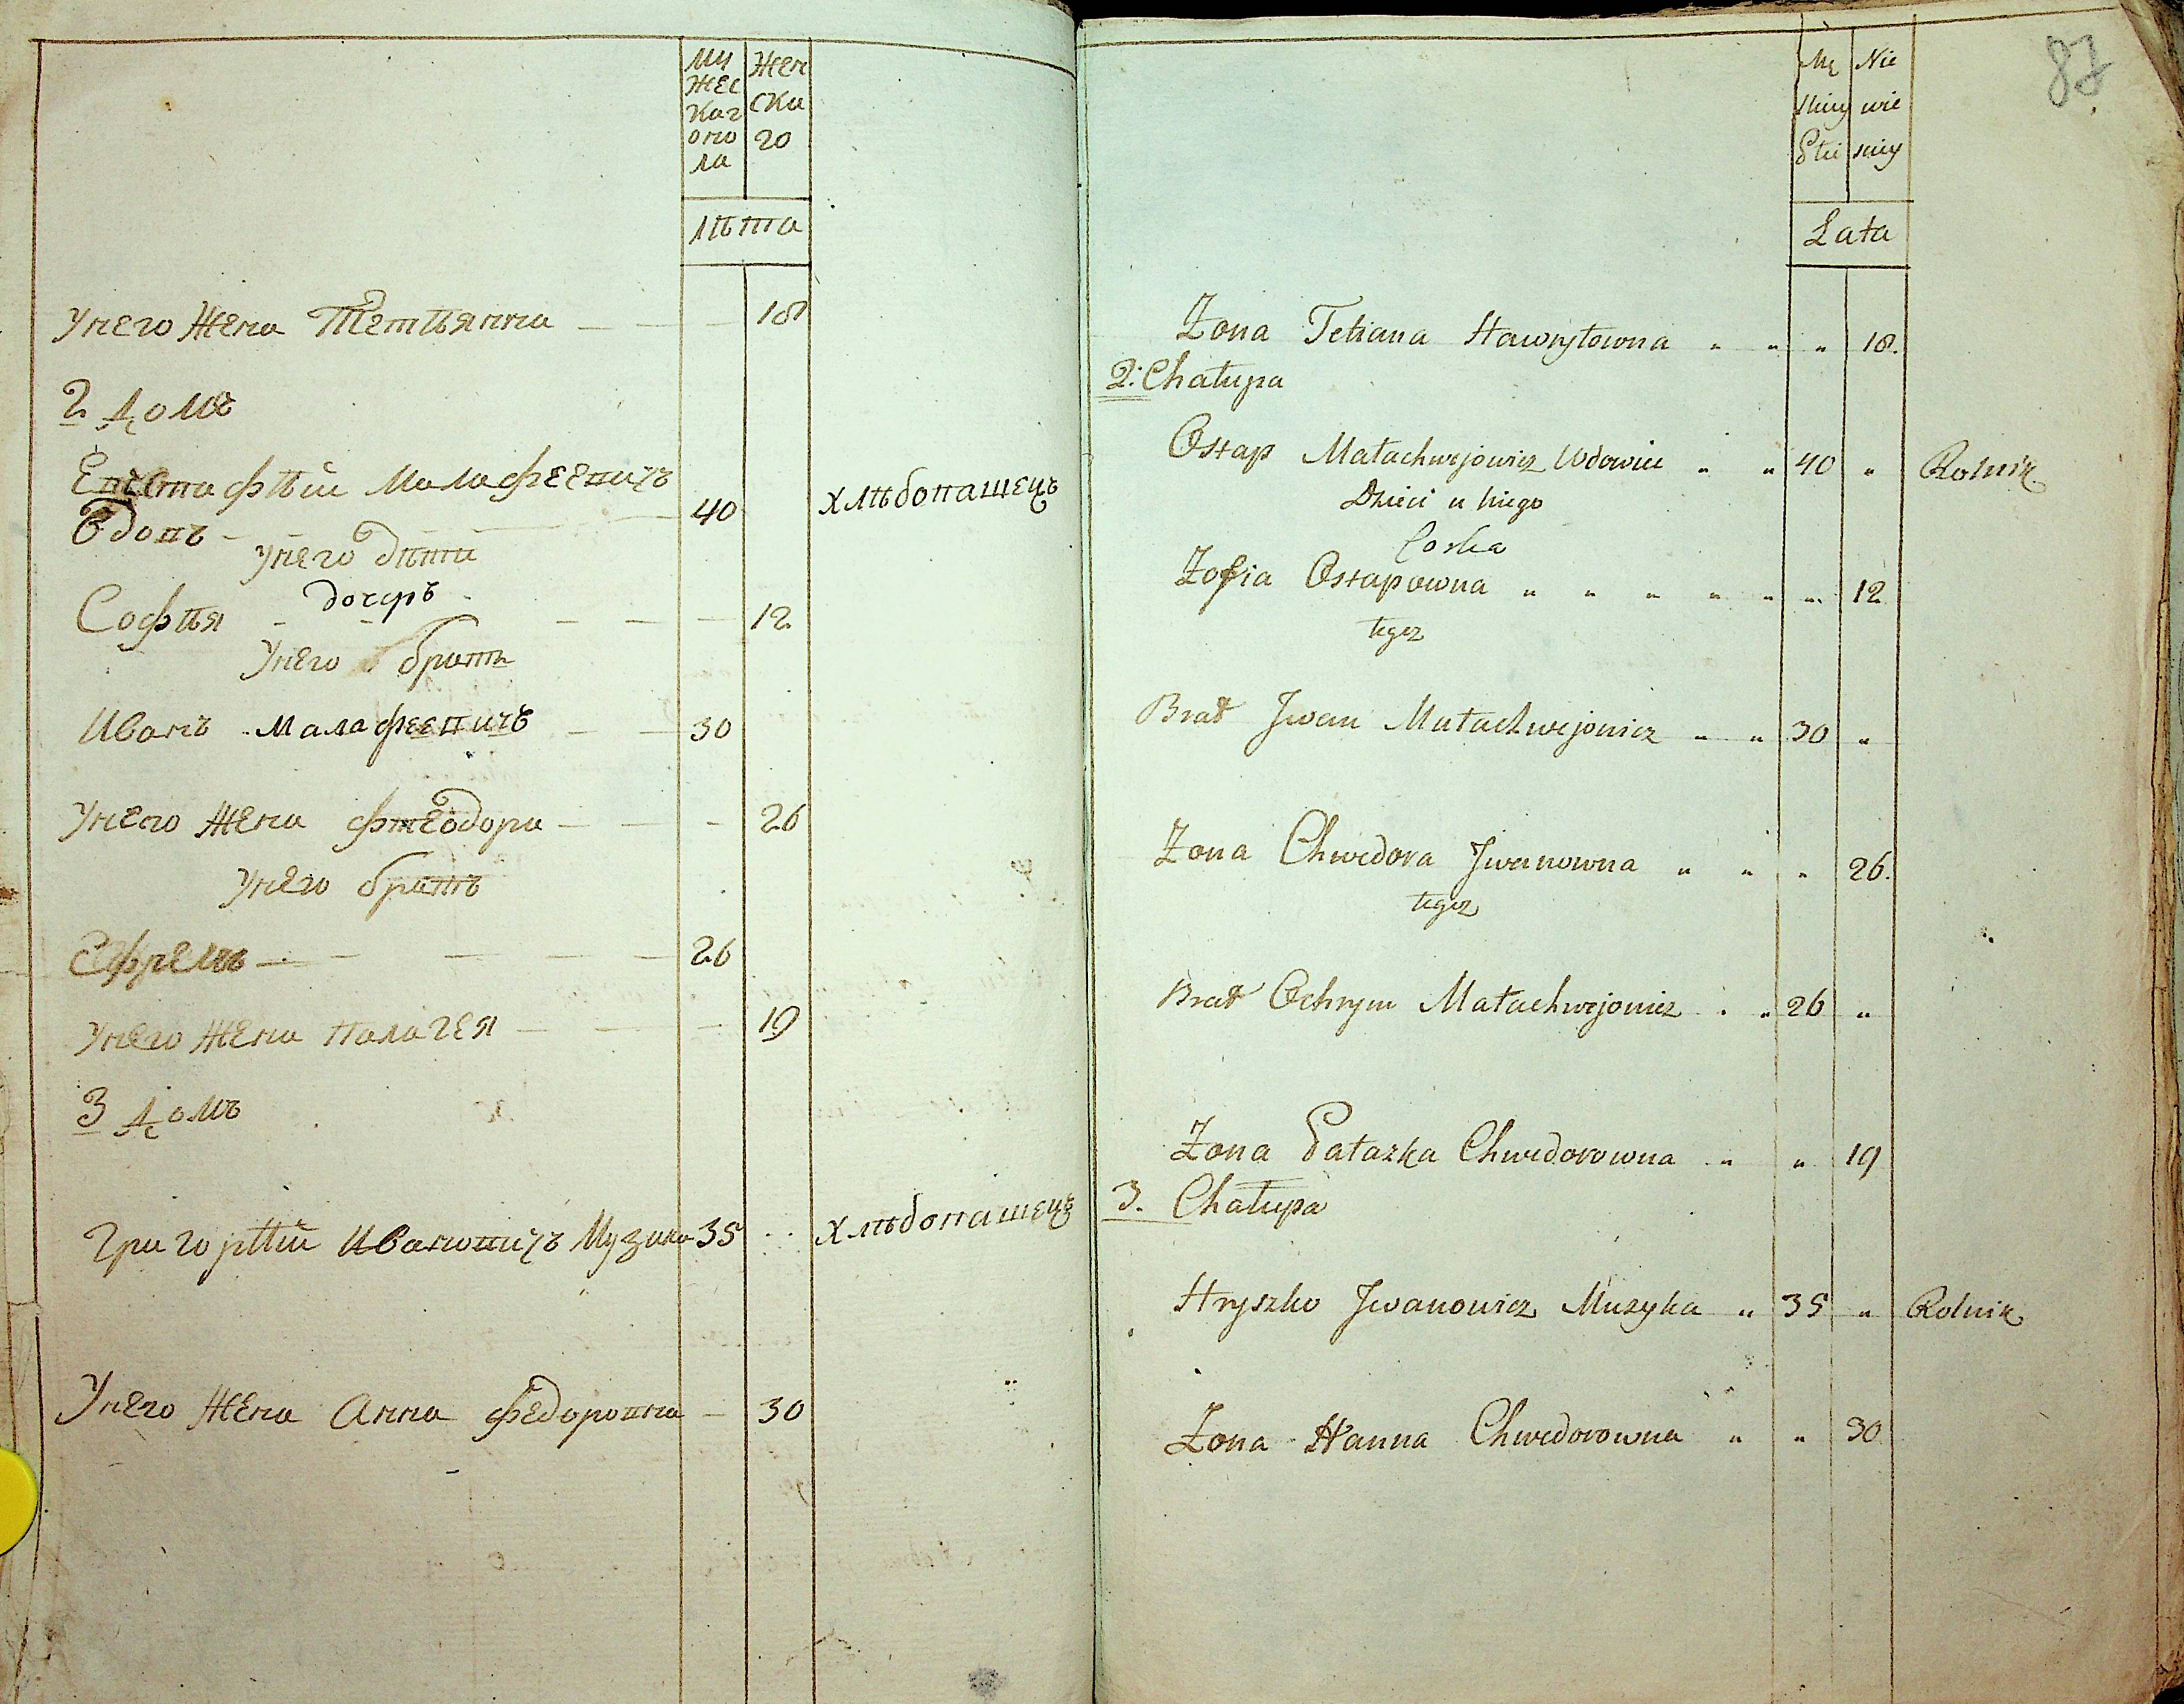 Му Жен
жес ска
каг го
опо
ла
лѣта
Унего Жена Тетьянна — — — 18
2 Домъ
Евстафий Малафеевичъ
Вдовъ — — — 40 хлѣбопашецъ
Унего дѣти
дочеръ
Софья — — — — — 12
Унего братъ
Иванъ Малафеевичъ — — 30
Унего Жена Фтеодора — — — 26
Унего братъ
Ефремъ — — — — — 26
Унего Жена Палагея — — — 19
3 Домъ
Григорий Ивановичъ Музика 35 хлѣбопашецъ
Унего Жена Анна Федоровна — 30
87
Mę Nie
skiey wie
Płci sciey
Łata
Zona Tetiana Hawryłowna " " " 18.
2: Chałupa
Ostap Małachwejowicz Wdowiec " " 40 " Rolnik
Dzieci u niego
Corka
Zofia Ostapowna " " " " " " 12
tegoz
Brat Jwan Małachwejowicz " " 30 "
Zona Chwedora Jwanowna " " " 26.
tegoz
Brat Ochrym Małachwejowicz " " 26 "
Zona Pałazka Chwedorowna " " 19
3. Chałupa
Hryszko Jwanowicz Muzyka " 35 " Rolnik
Zona Hanna Chwedorowna " " 30